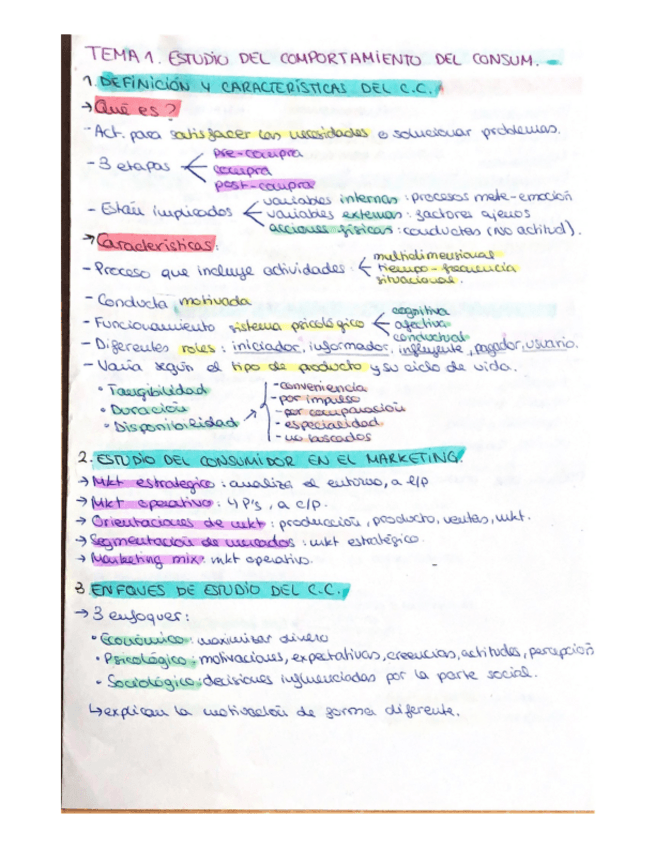 TEMA 1. ESTUDIO DEL COMPORTAMIENTO DEL CONSUM.
1. DEFINICIÓN Y CARACTERÍSTICAS DEL C.C.
→ Qué es?
- Act. para satisfacer las necesidades o solucionar problemas.
- 3 etapas
pre-compra
compra
post-compra
- Están implicados
variables internas: procesos mete-emoción
variables externas: factores ajenos
acciones físicas: conductas (no actitud).
→ Características:
- Proceso que incluye actividades:
multidimensional
tiempo - frecuencia
situacional.
- Conducta motivada
- Funcionamiento sistema psicológico
cognitiva
afectiva
conductual
- Diferentes roles: iniciador, informador, influyente, pagador, usuario.
- Varía según el tipo de producto y su ciclo de vida.
• Tangibilidad
• Duración
• Disponibilidad
- conveniencia
- por impulso
- por comparación
- especialidad
- no buscados
2. ESTUDIO DEL CONSUMIDOR EN EL MARKETING.
→ Mkt estratégico: analiza el entorno, a l/p
→ Mkt operativo: 4 P's, a c/p.
→ Orientaciones de mkt: producción, producto, ventas, mkt.
→ Segmentación de mercados: mkt estratégico.
→ Marketing mix: mkt operativo.
3. ENFOQUES DE ESTUDIO DEL C.C.
→ 3 enfoques:
• Económico: maximizar dinero
• Psicológico: motivaciones, expectativas, creencias, actitudes, percepción
• Sociológico: decisiones influenciadas por la parte social.
↳ explican la motivación de forma diferente.